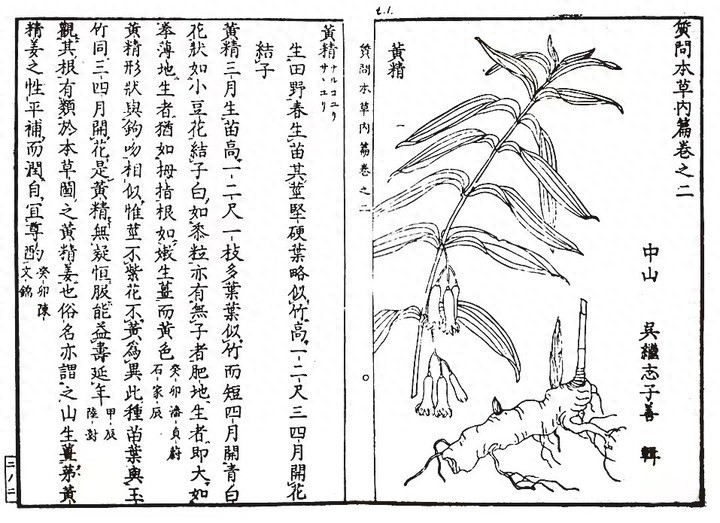 質問本草內篇卷之二
中山 吳繼志子善 輯
黃精
質問本草內篇卷之二
黃精 ナルコユリ サヽユリ
生田野春生苗其莖堅硬葉略似竹高一二尺三四月開花
結子
黃精三月生苗高一二尺一枝多葉葉似竹而短四月開青白
花狀如小豆花結子白如黍粒亦有無子者肥地生者即大如
拳薄地生者猶如拇指根如嫩生薑而黃色 癸卯潘貞蔚 石家辰
黃精形狀與鉤吻相似惟莖不紫花不黃為異此種苗葉與玉
竹同三四月開花是黃精無疑恒服能益壽延年 甲辰 陸澍
觀其根有類於本草圖之黃精姜也俗名亦謂之山生薑茅黃
精姜之性平補而潤自宜尊酌 癸卯陳 文錦
二ノ二